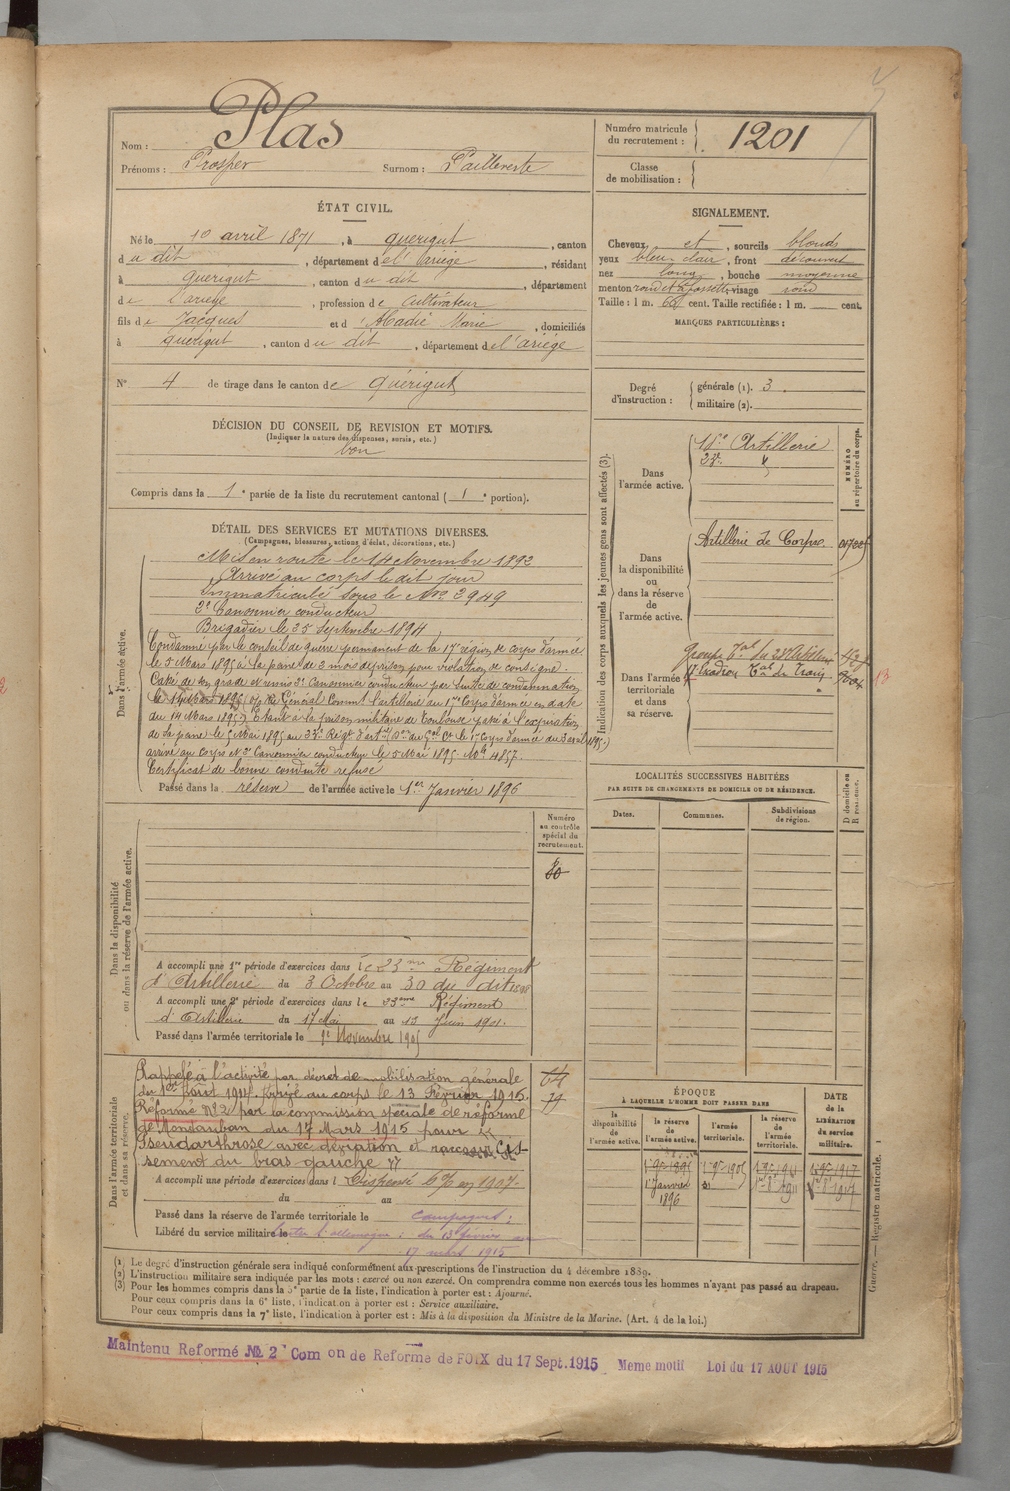 Nom : Plas
Prénoms : Prosper Surnom :
ÉTAT CIVIL.
Né le 10 avril 1871, à Quérigut, canton
du dit, département de l'Ariège, résidant
à Quérigut, canton du dit, département
de l'ariège, profession de Cultivateur
fils de Jacques et d'Abadie Marie, domiciliés
à Quérigut, canton du dit, département de l'ariège
N° 4 de tirage dans le canton de Quérigut
DÉCISION DU CONSEIL DE REVISION ET MOTIFS.
(Indiquer la nature des dispenses, sursis, etc.)
bon
Compris dans la 1e partie de la liste du recrutement cantonal ( 1e portion).
DÉTAIL DES SERVICES ET MUTATIONS DIVERSES.
(Campagnes, blessures, actions d'éclat, décorations, etc.)
Dans l'armée active.
Mis en route le 14 Novembre 1892
Arrivé au corps le dit jour
Immatriculé sous le Nro 2949
2e Canonnier conducteur
Brigadier le 25 Septembre 1894
Condamné par le conseil de guerre permanent de la 17e région de corps d'armée
le 5 Mars 1895 à la peine de 2 mois de prison pour violation de consigne.
Cassé de son grade et remis 2e Canonnier conducteur par suite de condamnation
le Général Command. l'artillerie du 17e Corps d'armée en date
du 14 Mars 1895. Étant à la prison militaire de Toulouse passé à l'expiration
de sa peine le 5 Mai 1895 au 23e Régt d'arte 17e Corps d'armée du 3 avril 1895.
arrivé au corps et 2e Canonnier conducteur le 5 Mai 1895. No 4857.
Certificat de bonne conduite refusé
Passé dans la réserve de l'armée active le 1er Janvier 1896
Dans la disponibilité
ou dans la réserve de l'armée active.
Numéro
au contrôle
spécial du
recrutement.
A accompli une 1re période d'exercices dans le 23me Régiment
d'Artillerie du 3 Octobre au 30 du dit 1898
A accompli une 2e période d'exercices dans le 23eme Régiment
d'Artillerie du 17 Mai au 13 Juin 1901.
Passé dans l'armée territoriale le 1er Novembre 1905
Dans l'armée territoriale
et dans sa réserve.
Rappelé à l'activité par décret de mobilisation générale
du 1er Août 1914. Arrivé au corps le 13 Février 1915.
Réformé N°2 par la commission spéciale de réforme
de Montauban du 17 Mars 1915 pour "
Pseudarthrose avec déviation et raccourcis-
sement du bras gauche "
64
79
A accompli une période d'exercices dans l Dispensé en 1907
du au
Passé dans la réserve de l'armée territoriale le campagnes :
Libéré du service militaire le contre l'allemagne : du 13 février au
17 mars 1915
Numéro matricule
du recrutement : 1201
Classe
de mobilisation :
SIGNALEMENT.
Cheveux et, sourcils blonds
yeux bleu clair, front découvert
nez long, bouche moyenne
menton rond et à fossette visage rond
Taille : 1 m. 64 cent. Taille rectifiée : 1 m. cent.
MARQUES PARTICULIÈRES :
Degré
d'instruction :
générale (1). 3.
militaire (2).
Indication des corps auxquels les jeunes gens sont affectés (3).
NUMÉRO
au répertoire du corps.
Dans
l'armée active.
18e Artillerie
23e "
Dans
la disponibilité
ou
dans la réserve
de
l'armée active.
Artillerie de Corps.
Dans l'armée
territoriale
et dans
sa réserve.
Groupe Tal du 23e Artillerie
17 Escadron Tal du Train
13
LOCALITÉS SUCCESSIVES HABITÉES
PAR SUITE DE CHANGEMENTS DE DOMICILE OU DE RÉSIDENCE.
Dates. Communes. Subdivisions
de région. D domicile ou
R résidence.
ÉPOQUE
À LAQUELLE L'HOMME DOIT PASSER DANS
la
disponibilité
de
l'armée active.
la réserve
de
l'armée active.
l'armée
territoriale.
la réserve
de
l'armée
territoriale.
DATE
de la
LIBÉRATION
du service
militaire.
1er Janvier
1896
Guerre. — Registre matricule. 1
(1) Le degré d'instruction générale sera indiqué conformément aux prescriptions de l'instruction du 4 décembre 1889.
(2) L'instruction militaire sera indiquée par les mots : exercé ou non exercé. On comprendra comme non exercés tous les hommes n'ayant pas passé au drapeau.
(3) Pour les hommes compris dans la 5e partie de la liste, l'indication à porter est : Ajourné.
Pour ceux compris dans la 6e liste, l'indication à porter est : Service auxiliaire.
Pour ceux compris dans la 7e liste, l'indication à porter est : Mis à la disposition du Ministre de la Marine. (Art. 4 de la loi.)
Maintenu Reformé No 2 Com on de Reforme de FOIX du 17 Sept. 1915 Meme motif Loi du 17 AOUT 1915